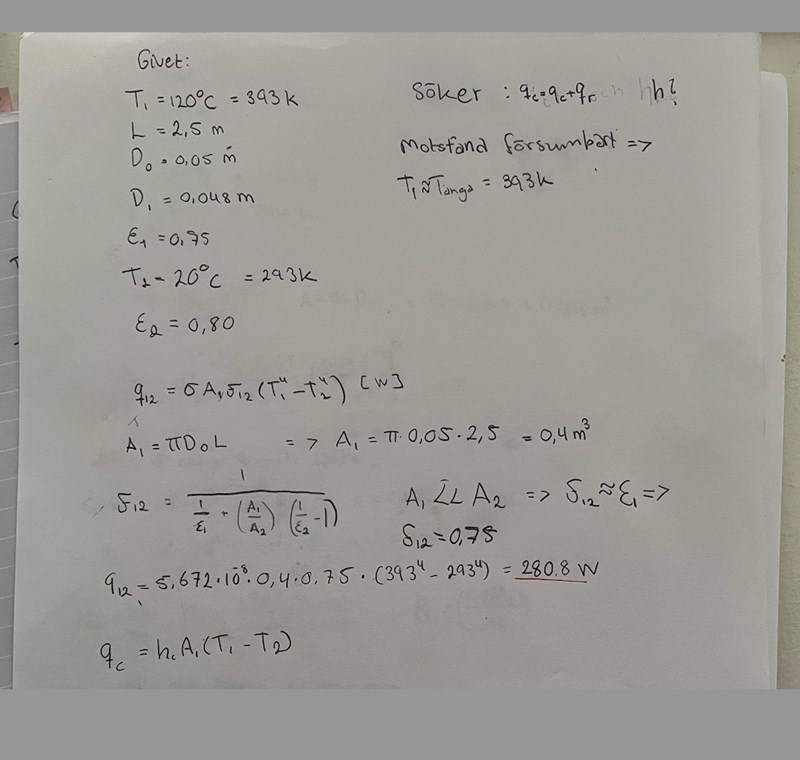 Givet:
T₁ = 120°C = 393 k
L = 2,5 m
D₀ = 0,05 m
D₁ = 0,048 m
ε₁ = 0,75
T₂ = 20°C = 293K
ε₂ = 0,80
Söker : qₜ = q_c + q_r h?
Motstånd försumbart =>
T₁ ≈ Tånga = 393k
q₁₂ = σ A₁ F₁₂ (T₁⁴ - T₂⁴) [W]
A₁ = πD₀L => A₁ = π · 0,05 · 2,5 = 0,4 m³
F₁₂ = 1 / (1/ε₁ + (A₁/A₂) (1/ε₂ - 1))
A₁ << A₂ => F₁₂ ≈ ε₁ =>
F₁₂ = 0,75
q₁₂ = 5,672 · 10⁻⁸ · 0,4 · 0.75 · (393⁴ - 293⁴) = 280.8 W
q_c = h_c A₁ (T₁ - T₂)